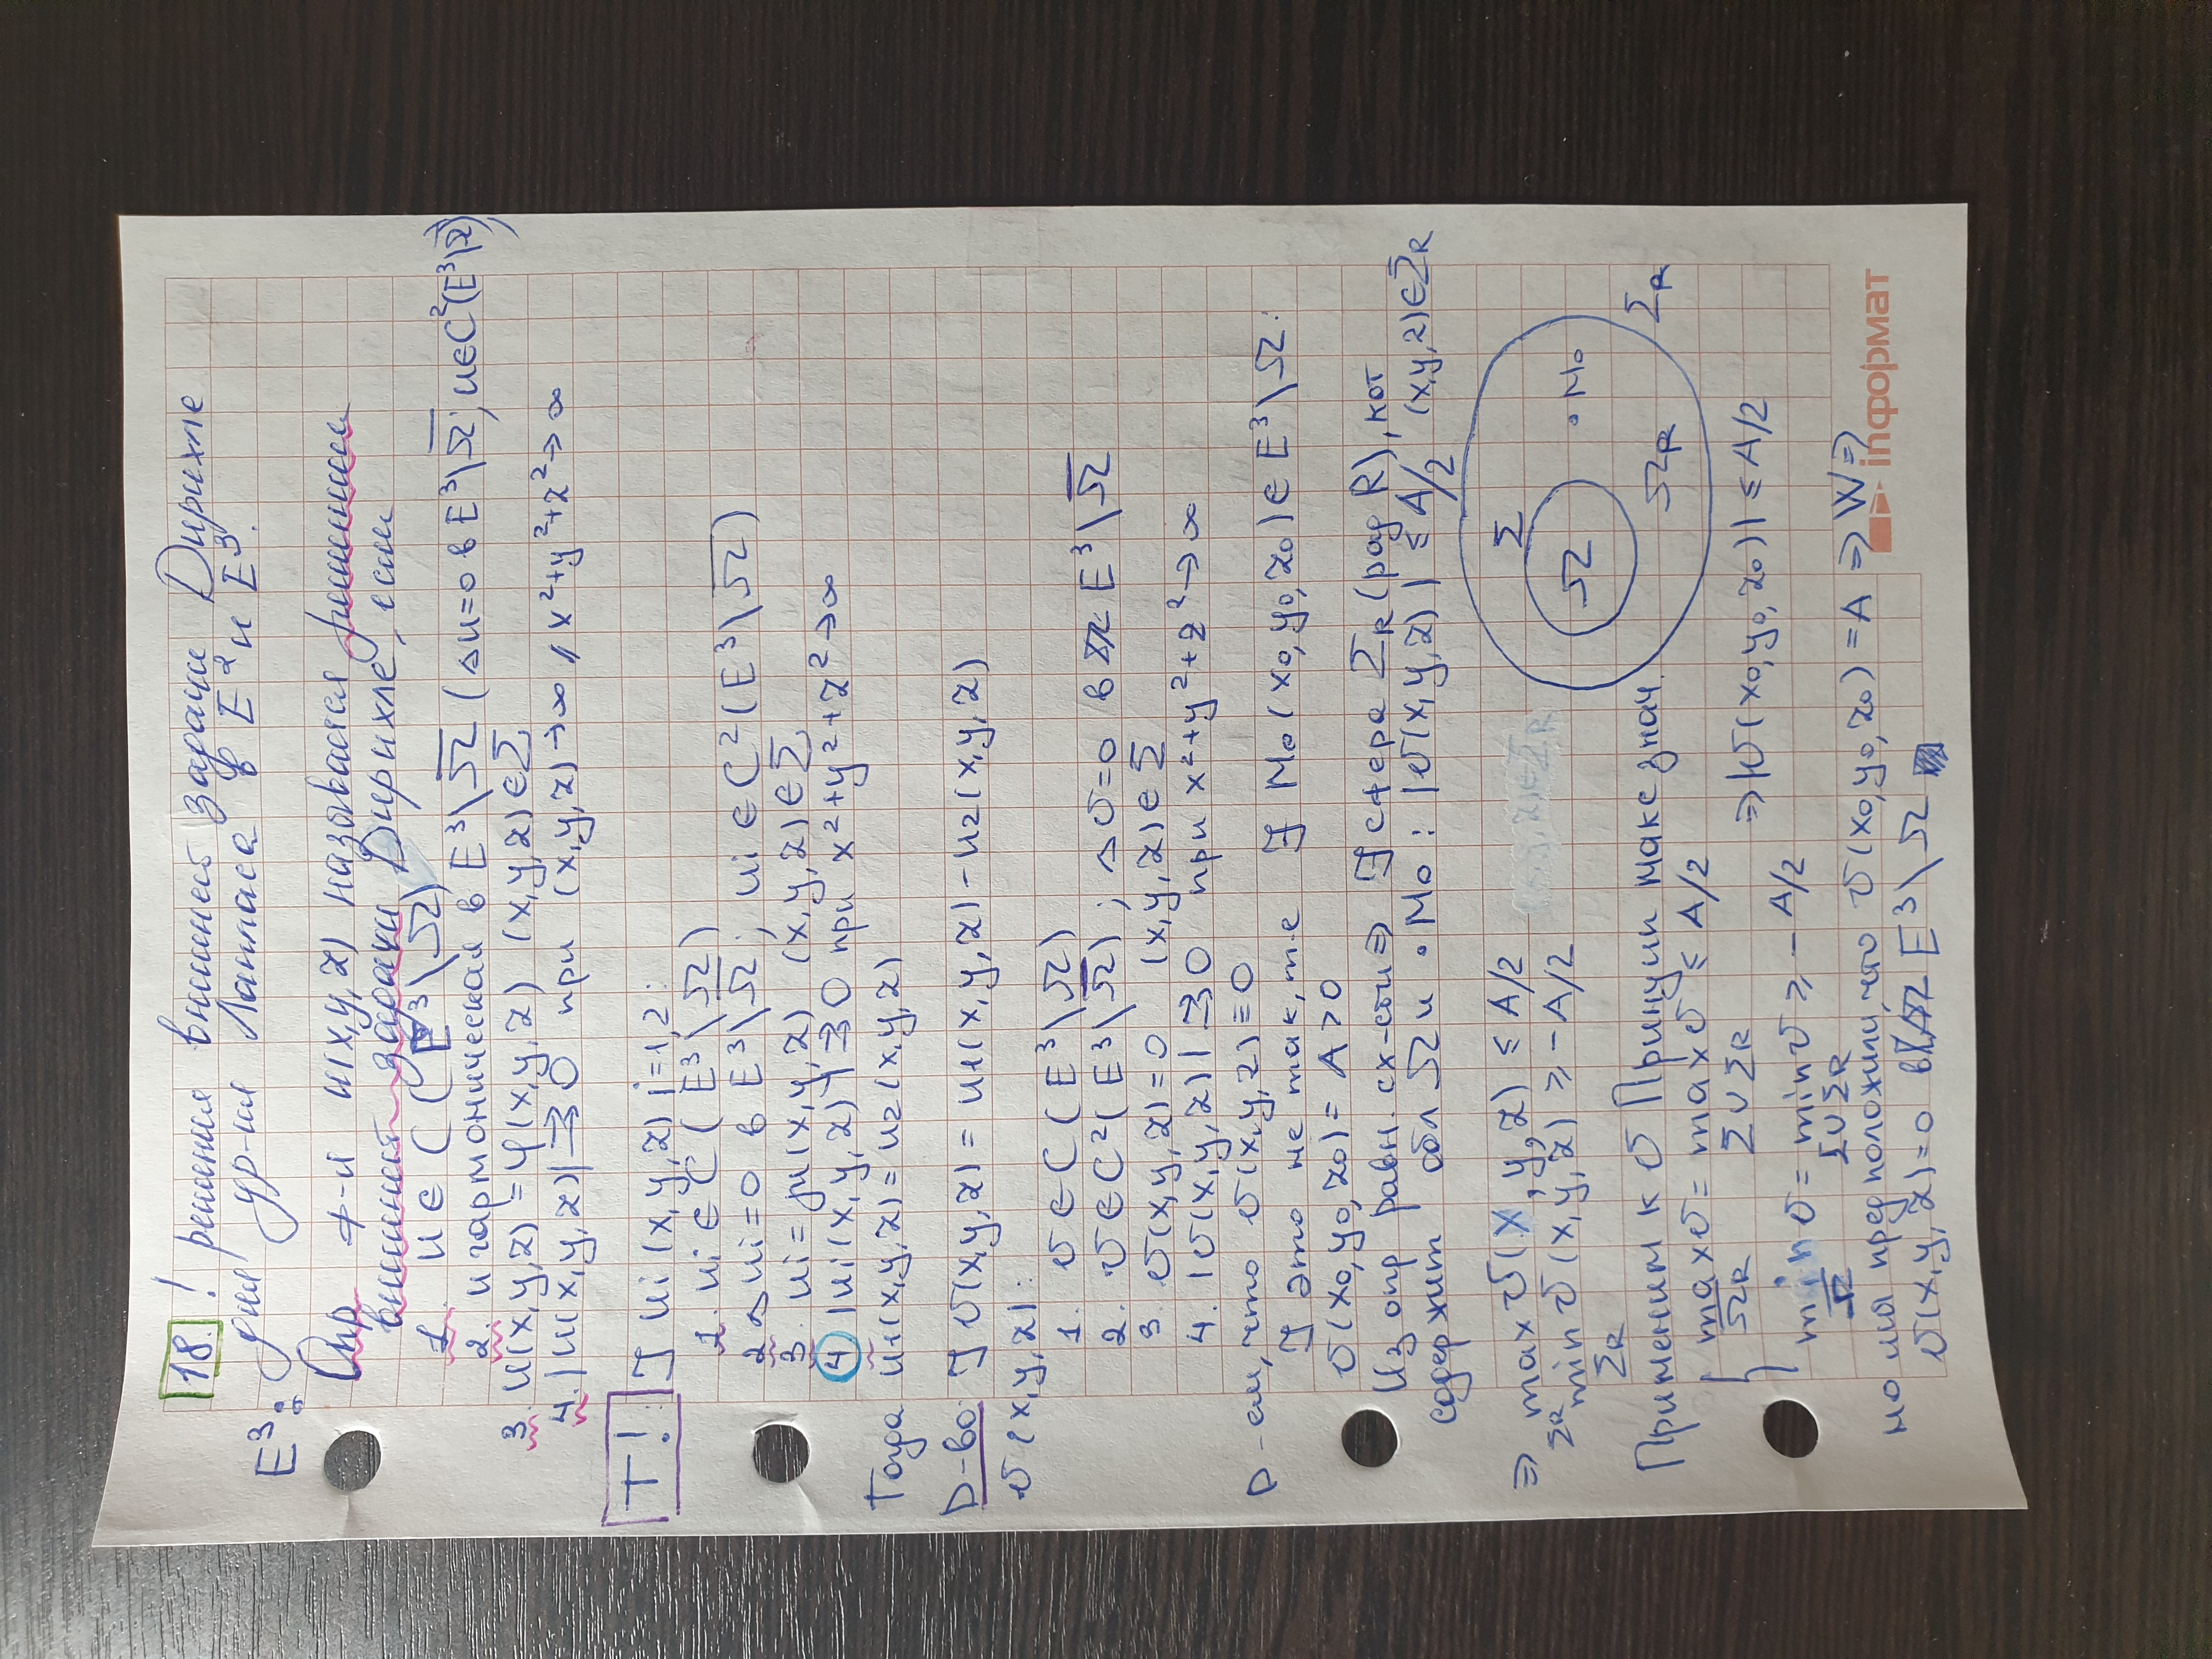 18. ! решения внешней задачи Дирихле
для ур-ия Лапласа в E² и E³.
E³:
Опр ф-я u(x,y,z) называется решением
внешней задачи Дирихле, если
1. u ∈ C(E³\Ω)
2. u гармоническая в E³\Ω̅ (Δu=0 в E³\Ω̅; u∈C²(E³\Ω̅))
3. u(x,y,z)=φ(x,y,z) (x,y,z)∈Σ
4. |u(x,y,z)|⇉0 при (x,y,z)→∞ // x²+y²+z²→∞
T! ] ui(x,y,z) i=1,2:
1. ui ∈ C(E³\Ω)
2. Δui=0 в E³\Ω̅; ui∈C²(E³\Ω̅)
3. ui=μ(x,y,z) (x,y,z)∈Σ
4 |ui(x,y,z)|⇉0 при x²+y²+z²→∞
Тогда u1(x,y,z)=u2(x,y,z)
D-во ] v(x,y,z)=u1(x,y,z)-u2(x,y,z)
v(x,y,z):
1. v∈C(E³\Ω)
2. v∈C²(E³\Ω̅); Δv=0 в E³\Ω̅
3. v(x,y,z)=0 (x,y,z)∈Σ
4. |v(x,y,z)|⇉0 при x²+y²+z²→∞
D-ем, что v(x,y,z)≡0
] это не так, т.е ∃ M0(x0,y0,z0)∈E³\Ω:
v(x0,y0,z0)=A>0
Из опр равн. сх-сти⇒ ∃ сфера ΣR (рад R), кот
содержит обл Ω и •M0: |v(x,y,z)|≤A/2 (x,y,z)∈ΣR
⇒ max v(x,y,z) ≤ A/2
ΣR
min v(x,y,z) ≥ -A/2
ΣR
Σ
Ω
•M0
ΩR
ΣR
Применим к v Принцип макс знач.
{ max v = max v ≤ A/2
Ω̅R Σ∪ΣR
⇒|v(x0,y0,z0)|≤A/2
min v = min v ≥ -A/2
Ω̅ Σ∪ΣR
но мы предположили, что v(x0,y0,z0)=A ⇒W⇒
v(x,y,z)=0 в E³\Ω
inформат